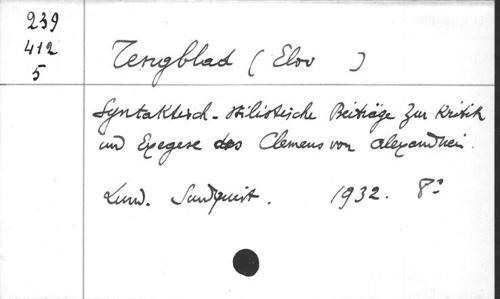 239
412
5
Tengblad ( Elov )
Syntaktisch-stilistische Beiträge zur Kritik
und Exegese des Clemens von Alexandrien.
Lund. Sundquist. 1932. 8°